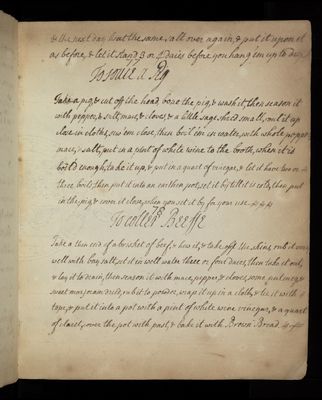 & the next day, beat the same salt over again, & put it upon it
as before, & let it stand 3 or 4 daies before you hang em up to dry
To souce a Pig
Take a pig & cut off the head, bone the pig, & wash it then season it
with pepper, & salt, mace, & cloves, & a little sage shred small, roul it up
close in cloths, sow em close, then boil it in water, with whole pepper
mace, & salt, put in a pint of white wine to the broth, when it is
boil'd enough, take it up, & put in a quart of vinegar, & let it have two or
three boils, then put it into an earthen pot, set it by till it is cold, then put
in the pig & cover it close, when you set it by for your use
To coller Beeffe
Take a thin end of a brisket of beef, & bone it, & take off the skins, rub it over
well with bay salt, set it in well water three or four daies, then take it out,
& lay it to drain, then season it with mace, pepper, & cloves, some nutmeg, &
sweet marjoram dried, rub it to powder, wrap it up in a cloth, & tie it with
tape, & put it into a pot with a pint of white wine vinegar, & a quart
of claret, cover the pot with past, & bake it with Brown Bread